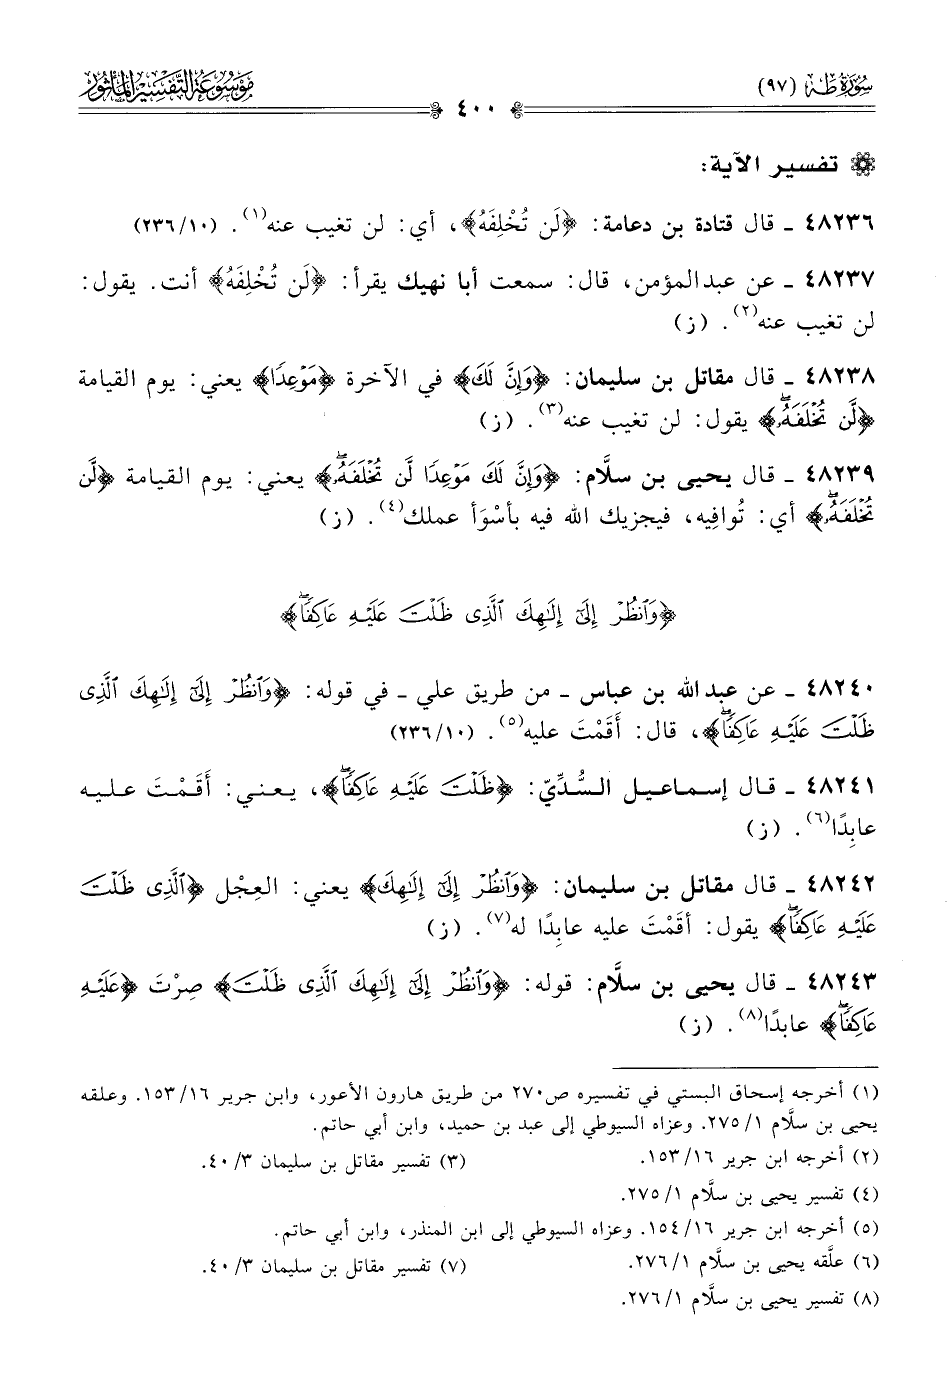 سُورَةُ طه (٩٧)
موسوعة التفسير المأثور
٤٠٠
تفسير الآية:
٤٨٢٣٦ ـ قال قتادة بن دعامة: ﴿لَن تُخْلِفَهُ﴾، أي: لن تغيب عنه(١). (٢٣٦/١٠)
٤٨٢٣٧ ـ عن عبدالمؤمن، قال: سمعت أبا نهيك يقرأ: ﴿لَن تُخْلِفَهُ﴾ أنت. يقول:
لن تغيب عنه(٢). (ز)
٤٨٢٣٨ ـ قال مقاتل بن سليمان: ﴿وَإِنَّ لَكَ﴾ في الآخرة ﴿مَوْعِدًا﴾ يعني: يوم القيامة
﴿لَّن تُخْلَفَهُۥ﴾ يقول: لن تغيب عنه(٣). (ز)
٤٨٢٣٩ ـ قال يحيى بن سلَّام: ﴿وَإِنَّ لَكَ مَوْعِدًا لَّن تُخْلَفَهُۥ﴾ يعني: يوم القيامة ﴿لَّن
تُخْلَفَهُۥ﴾ أي: تُوافِيه، فيجزيك الله فيه بأسْوَأ عملك(٤). (ز)
﴿وَٱنظُرْ إِلَىٰٓ إِلَٰهِكَ ٱلَّذِى ظَلْتَ عَلَيْهِ عَاكِفًاۖ﴾
٤٨٢٤٠ ـ عن عبد الله بن عباس ـ من طريق علي ـ في قوله: ﴿وَٱنظُرْ إِلَىٰٓ إِلَٰهِكَ ٱلَّذِى
ظَلْتَ عَلَيْهِ عَاكِفًاۖ﴾، قال: أَقَمْتَ عليه(٥). (٢٣٦/١٠)
٤٨٢٤١ ـ قال إسماعيل السُّدِّيّ: ﴿ظَلْتَ عَلَيْهِ عَاكِفًاۖ﴾، يعني: أَقَمْتَ عليه
عابِدًا(٦). (ز)
٤٨٢٤٢ ـ قال مقاتل بن سليمان: ﴿وَٱنظُرْ إِلَىٰٓ إِلَٰهِكَ﴾ يعني: العِجْل ﴿ٱلَّذِى ظَلْتَ
عَلَيْهِ عَاكِفًاۖ﴾ يقول: أقَمْتَ عليه عابِدًا له(٧). (ز)
٤٨٢٤٣ ـ قال يحيى بن سلَّام: قوله: ﴿وَٱنظُرْ إِلَىٰٓ إِلَٰهِكَ ٱلَّذِى ظَلْتَ﴾ صِرْتَ ﴿عَلَيْهِ
عَاكِفًاۖ﴾ عابدًا(٨). (ز)
(١) أخرجه إسحاق البستي في تفسيره ص٢٧٠ من طريق هارون الأعور، وابن جرير ١٥٣/١٦. وعلقه
يحيى بن سلَّام ٢٧٥/١. وعزاه السيوطي إلى عبد بن حميد، وابن أبي حاتم.
(٢) أخرجه ابن جرير ١٥٣/١٦.
(٣) تفسير مقاتل بن سليمان ٤٠/٣.
(٤) تفسير يحيى بن سلَّام ٢٧٥/١.
(٥) أخرجه ابن جرير ١٥٤/١٦. وعزاه السيوطي إلى ابن المنذر، وابن أبي حاتم.
(٦) علَّقه يحيى بن سلَّام ٢٧٦/١.
(٧) تفسير مقاتل بن سليمان ٤٠/٣.
(٨) تفسير يحيى بن سلَّام ٢٧٦/١.